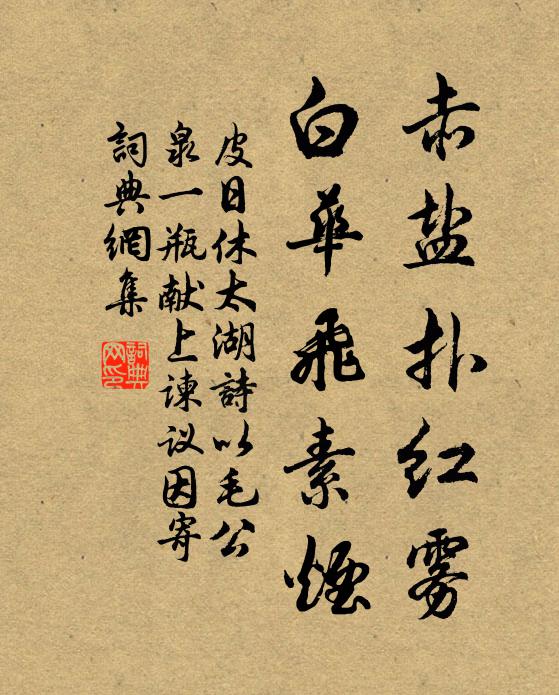 赤盐扑红雾
白華飛素煙
皮日休太湖詩以毛公
泉一瓶献上諫议因寄
詞典網集
詞典网印